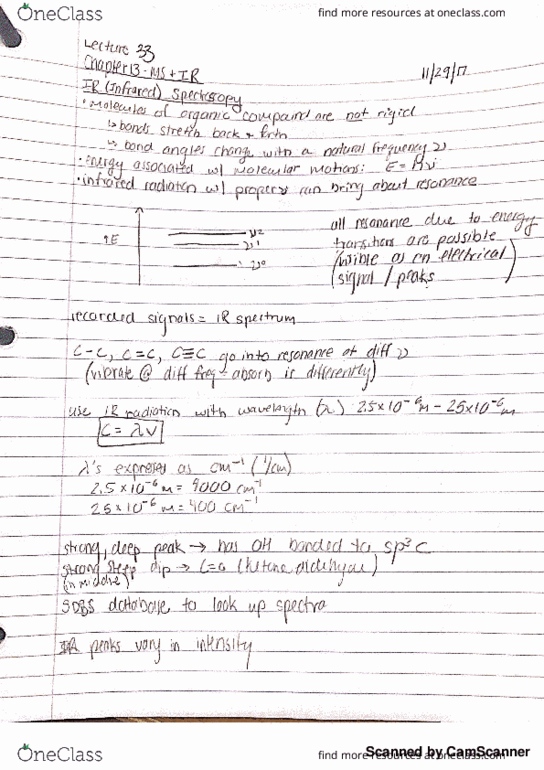 OneClass
find more resources at oneclass.com
Lecture 33
Chapter 13 - MS + IR
11/29/17
IR (Infrared) Spectroscopy
• molecules of organic compound are not rigid
↳ bonds stretch back + forth
↳ bond angles change with a natural frequency ν
• energy associated w/ molecular motions: E = hν
• infrared radiation w/ proper ν can bring about resonance
↑E
ν2
ν1
ν0
all resonance due to energy
transitions are possible
(visible as an electrical
signal / peaks)
recorded signals = IR spectrum
C-C, C=C, C≡C go into resonance at diff ν
(vibrate @ diff freq - absorb ir differently)
use IR radiation with wavelength (λ) 2.5x10⁻⁶m - 25x10⁻⁶m
C = λν
λ's expresses as cm⁻¹ (1/cm)
2.5 x 10⁻⁶ m = 4000 cm⁻¹
25 x 10⁻⁶ m = 400 cm⁻¹
strong, deep peak → has OH bonded to sp³ C
strong steep dip → C=O (ketone aldehyde)
(in middle)
SDBS database to look up spectra
IR peaks vary in intensity
OneClass
find more resources at oneclass.com
Scanned by CamScanner